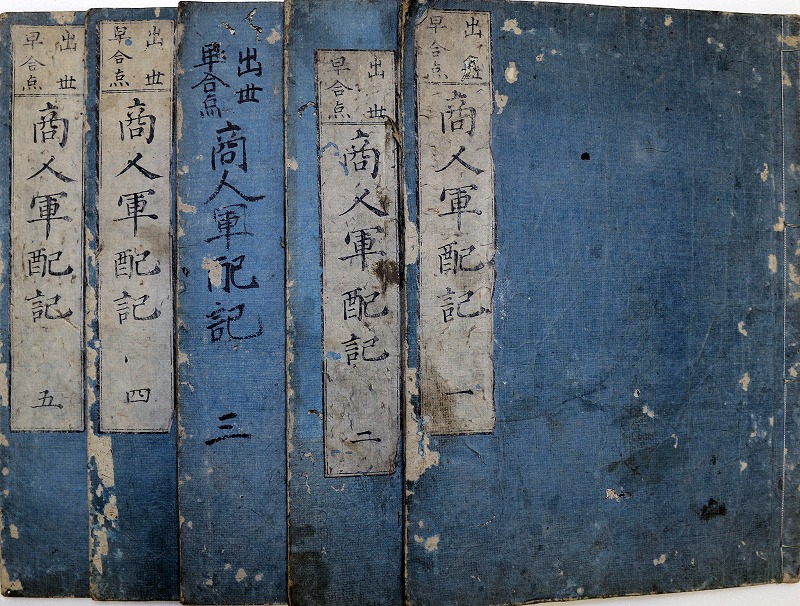 出世
早合点
商人軍配記
一
出世
早合点
商人軍配記
二
出世
早合点
商人軍配記
三
出世
早合点
商人軍配記
四
出世
早合点
商人軍配記
五